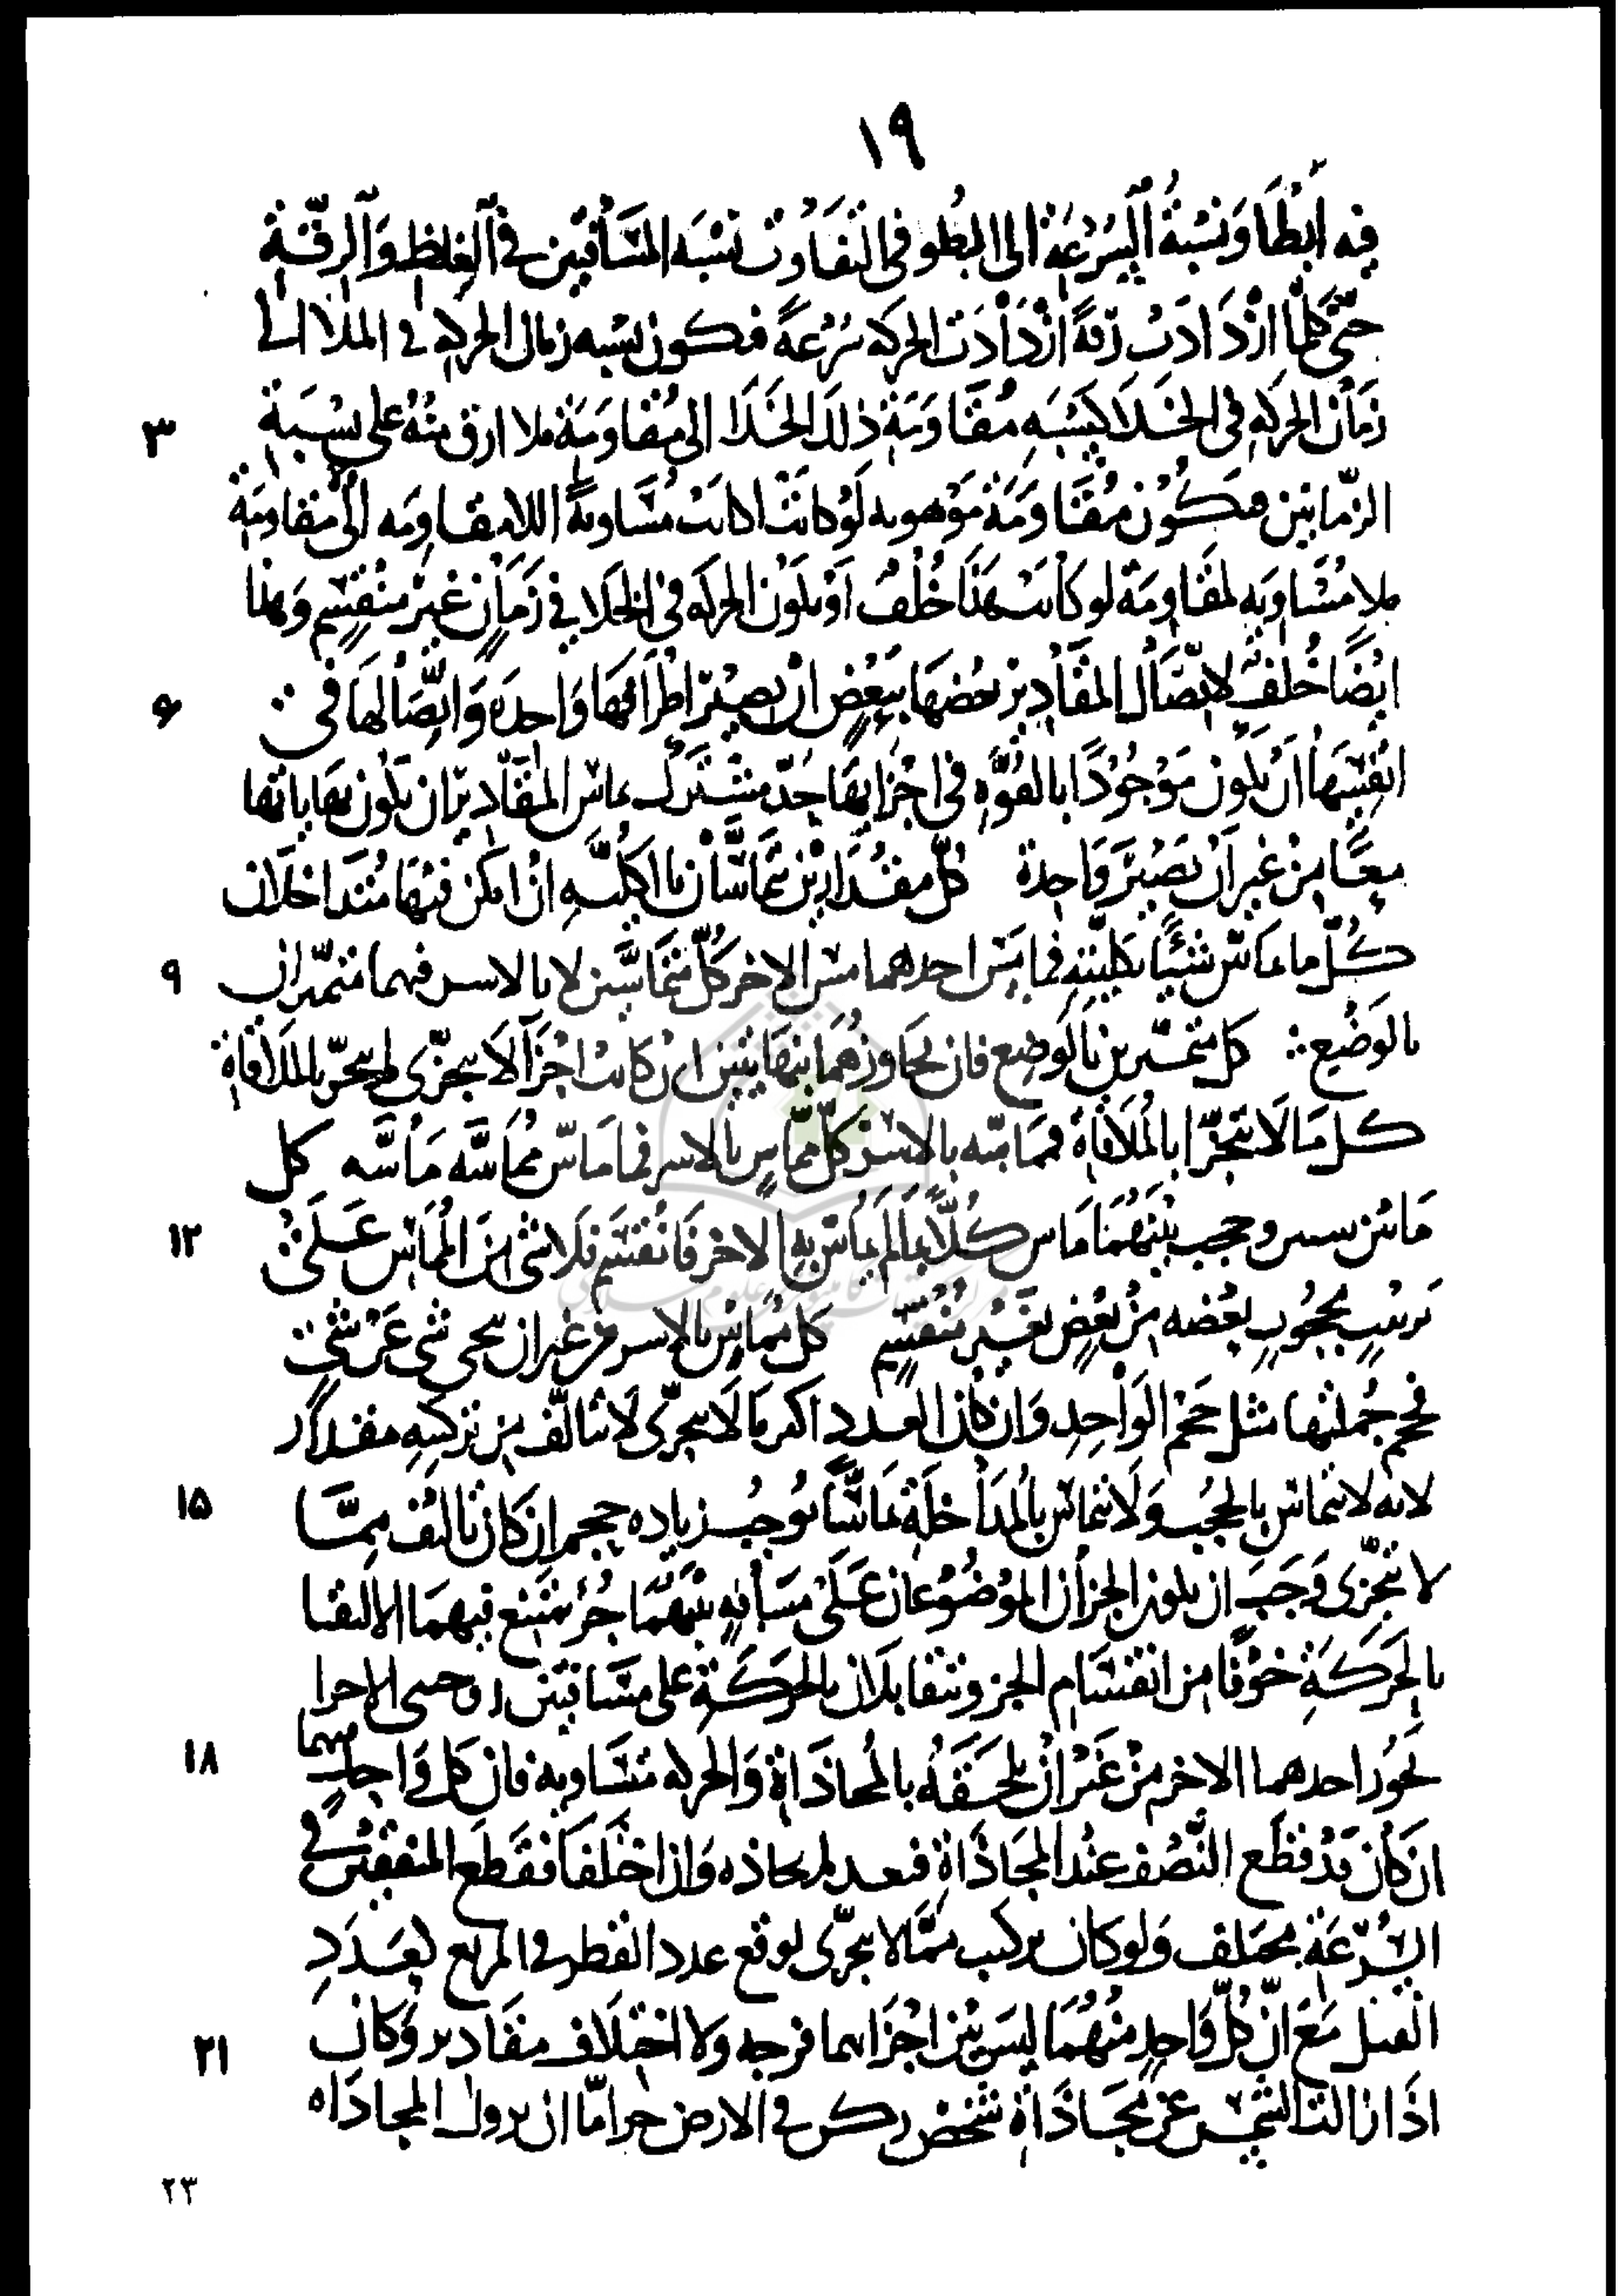 ١٩
فيه ابطا ونسبة السرعة الى البطو فى التفاوت نسبه المسافتين فى الغلظ والرقة
حتى كلما ازدادت رقة ازدادت الحركه سرعة فكون نسبه زمان الحركه فى الملا الى
زمان الحركه فى الخلا كنسبه مقاومة ذلك الخلا الى مقاومة ملا ارق منه على نسبة
٣
الزمانين فكون مقاومة موهومه لو كانت اكانت مساوية اللامقاومه الى مقاومة
ملا مساويه لمقاومة لو كانت هذا خلف او يكون الحركه فى الخلا فى زمان غير منقسم وهذا
ايضا خلف لاتصال المقادير بعضها ببعض ان يصير اطرافها واحده واتصالها فى
۶
انفسها ان يكون موجودا بالقوه فى اجزايها حد مشترك تماس المقادير ان يكون نهاياتها
معا من غير ان تصير واحدة كل مقدارين تماسان بالكليه ان امكن فيها متداخلان
كل ما ماس شيئا بكليته فما مس احدهما مس الاخر كل متماسين لا بالاسر فهما متميزان
٩
بالوضع كل متميزين بالوضع فان تجاوزهما بنهايتين ان كانت اجزا لا يتجزى لم يتجز بالملاقاة
كل ما لا يتجزا بالملاقاة فمماسه بالاسر كل مماس بالاسر فما ماس مماسه ماسه كل
ما بين سىين وحجب بينهما ماس كلا بما لم يماس به الاخر فانقسم فلا شى من المماس على
١٢
ترتيب بحجوب بعضه من بعض بغير منقسم كل مماس بالاسر من غير ان ينحى شى عن شى
فحجم جملتها مثل حجم الواحد وان كان العدد اكثر ما لا يتجزى لا يتالف من تركيبه مقدار
لانه لا تماس بالحجب ولا تماس بالمداخلة تماسا يوجب زياده حجم ان كان تالف مما
١۵
لا يتجزى وجب ان يكون الجزآن الموضوعان على مسافه بينهما جزء ممتنع فيهما الالتقا
بالحركة خوفا من انقسام الجزو وتتقابلان بالحركة على مسافتين زوجى الاجزا
يجوز احدهما الاخر من غير ان يلحقه بالمحاذاة والحركه متساويه فان كل واحد منهما
١٨
ان كان قد قطع النصف عند المحاذاة فبعد لم يحاذه وان اختلفا فقطع المتفقتين فى
السرعة مختلف ولو كان تركيب مما لا يتجزى لوقع عدد القطر فى المربع لعدد
الضلع مع ان كل واحد منهما ليس بين اجزايهما فرجه ولا اختلاف مقادير وكان
٢١
اذا زالت الشمس عن محاذاة شخص ركز فى الارض جزا اما ان يزول المحاذاه
٢٣